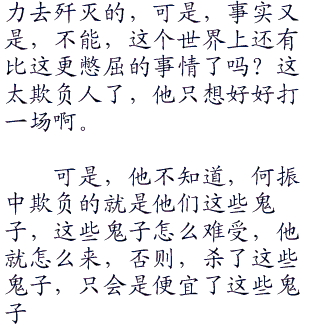 力去歼灭的，可是，事实又
是，不能，这个世界上还有
比这更憋屈的事情了吗？这
太欺负人了，他只想好好打
一场啊。
可是，他不知道，何振
中欺负的就是他们这些鬼
子，这些鬼子怎么难受，他
就怎么来，否则，杀了这些
鬼子，只会是便宜了这些鬼
子